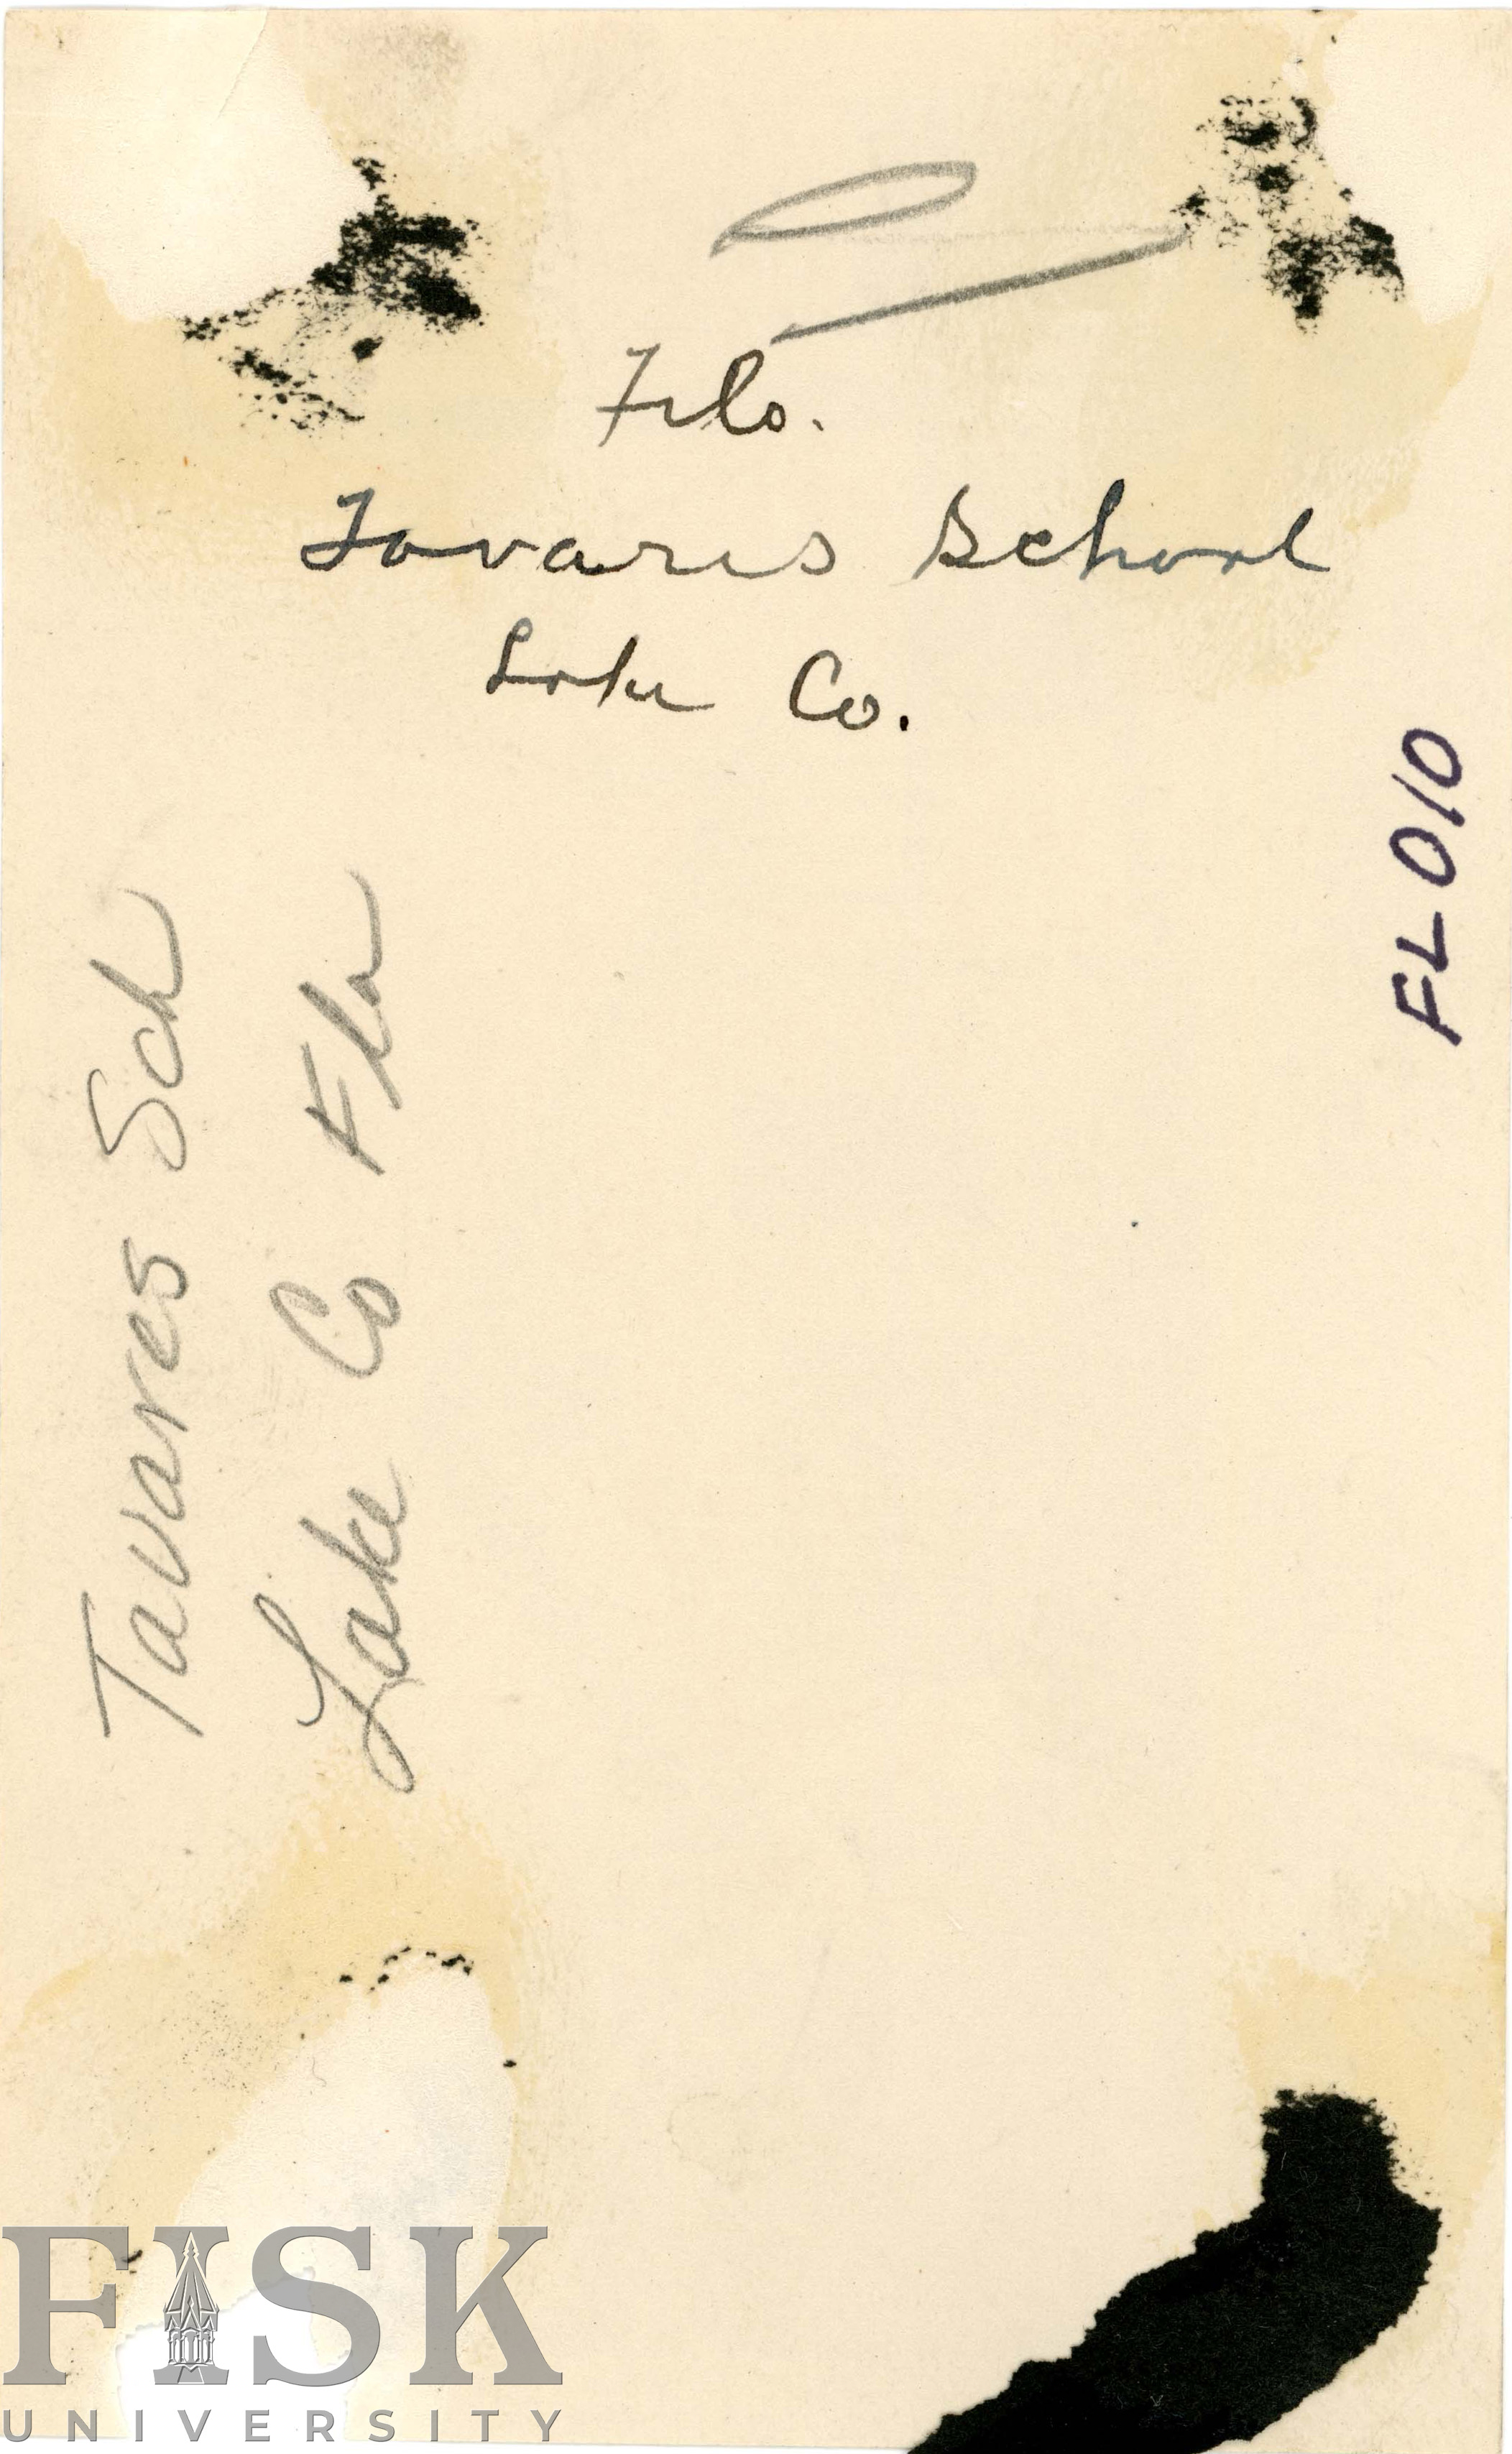 Fla.
Tavares School
Lake Co.
FL010
Tavares Sch
Lake Co Fla
FISK
UNIVERSITY